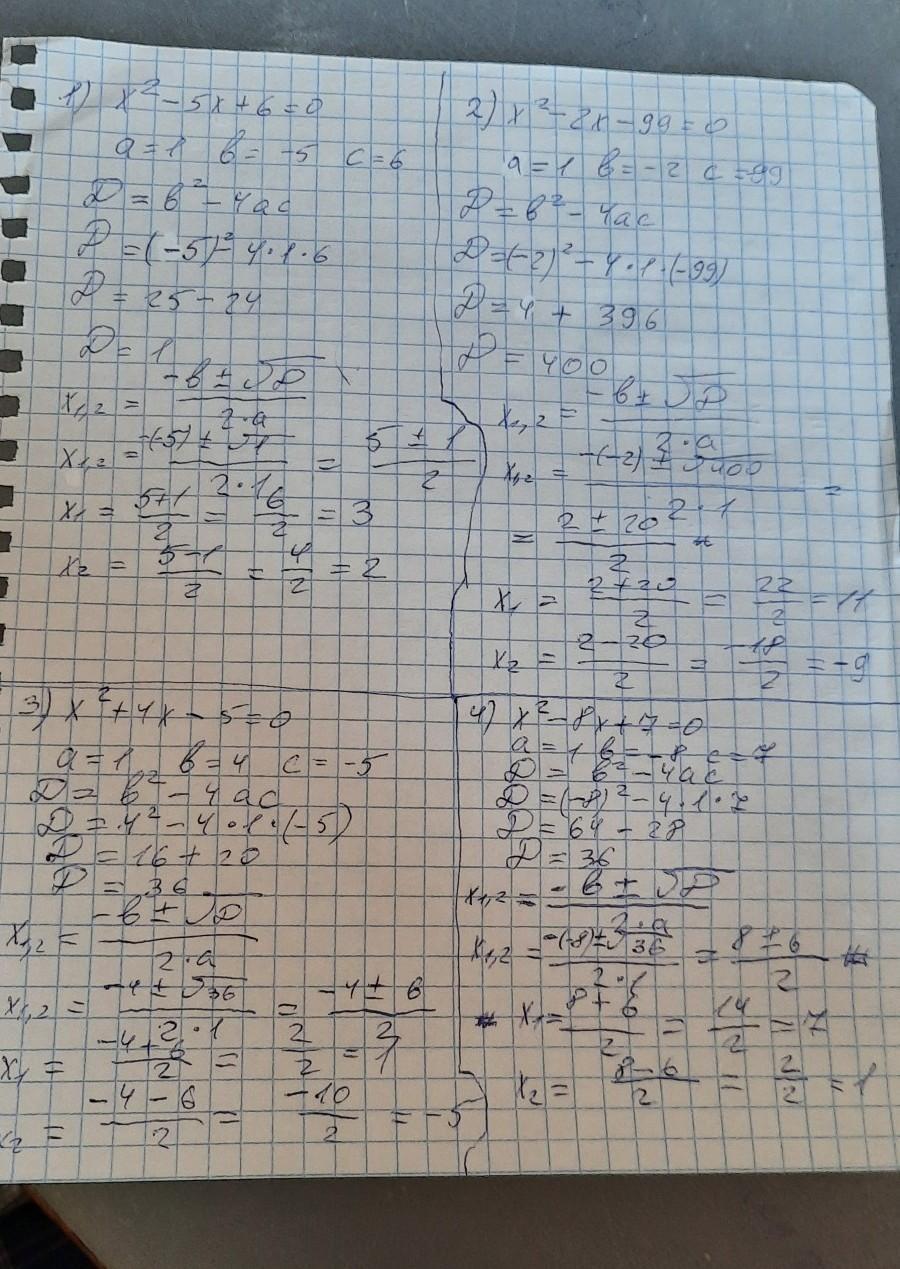 1) x² - 5x + 6 = 0
a = 1 b = -5 c = 6
D = b² - 4ac
D = (-5)² - 4·1·6
D = 25 - 24
D = 1
x₁,₂ = (-b ± √D)/(2·a)
x₁,₂ = (-(-5) ± √1)/(2·1) = (5 ± 1)/2
x₁ = (5+1)/2 = 6/2 = 3
x₂ = (5-1)/2 = 4/2 = 2
2) x² - 2x - 99 = 0
a = 1 b = -2 c = -99
D = b² - 4ac
D = (-2)² - 4·1·(-99)
D = 4 + 396
D = 400
x₁,₂ = (-b ± √D)/(2·a)
x₁,₂ = (-(-2) ± √400)/(2·1) =
= (2 ± 20)/2
x₁ = (2+20)/2 = 22/2 = 11
x₂ = (2-20)/2 = -18/2 = -9
3) x² + 4x - 5 = 0
a = 1 b = 4 c = -5
D = b² - 4ac
D = 4² - 4·1·(-5)
D = 16 + 20
D = 36
x₁,₂ = (-b ± √D)/(2·a)
x₁,₂ = (-4 ± √36)/(2·1) = (-4 ± 6)/2
x₁ = (-4+6)/2 = 2/2 = 1
x₂ = (-4-6)/2 = -10/2 = -5
4) x² - 8x + 7 = 0
a = 1 b = -8 c = 7
D = b² - 4ac
D = (-8)² - 4·1·7
D = 64 - 28
D = 36
x₁,₂ = (-b ± √D)/(2·a)
x₁,₂ = (-(-8) ± √36)/(2·1) = (8 ± 6)/2
x₁ = (8+6)/2 = 14/2 = 7
x₂ = (8-6)/2 = 2/2 = 1